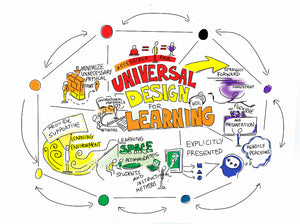 ACCESSIBLE & FAIR
UNIVERSAL
DESIGN
FOR
LEARNING
MINIMIZE
UNNECESSARY
PHYSICAL
EFFORT
STRAIGHT
FORWARD
CONSISTENT
FLEXIBLE
PRESENTATION
READILY
PERCEIVED
EXPLICITLY
PRESENTED
LEARNING
SPACE
ACCOMMODATES
STUDENTS
AND
INSTRUCTIONAL
METHODS
PROVIDE
SUPPORTIVE
LEARNING
ENVIRONMENT